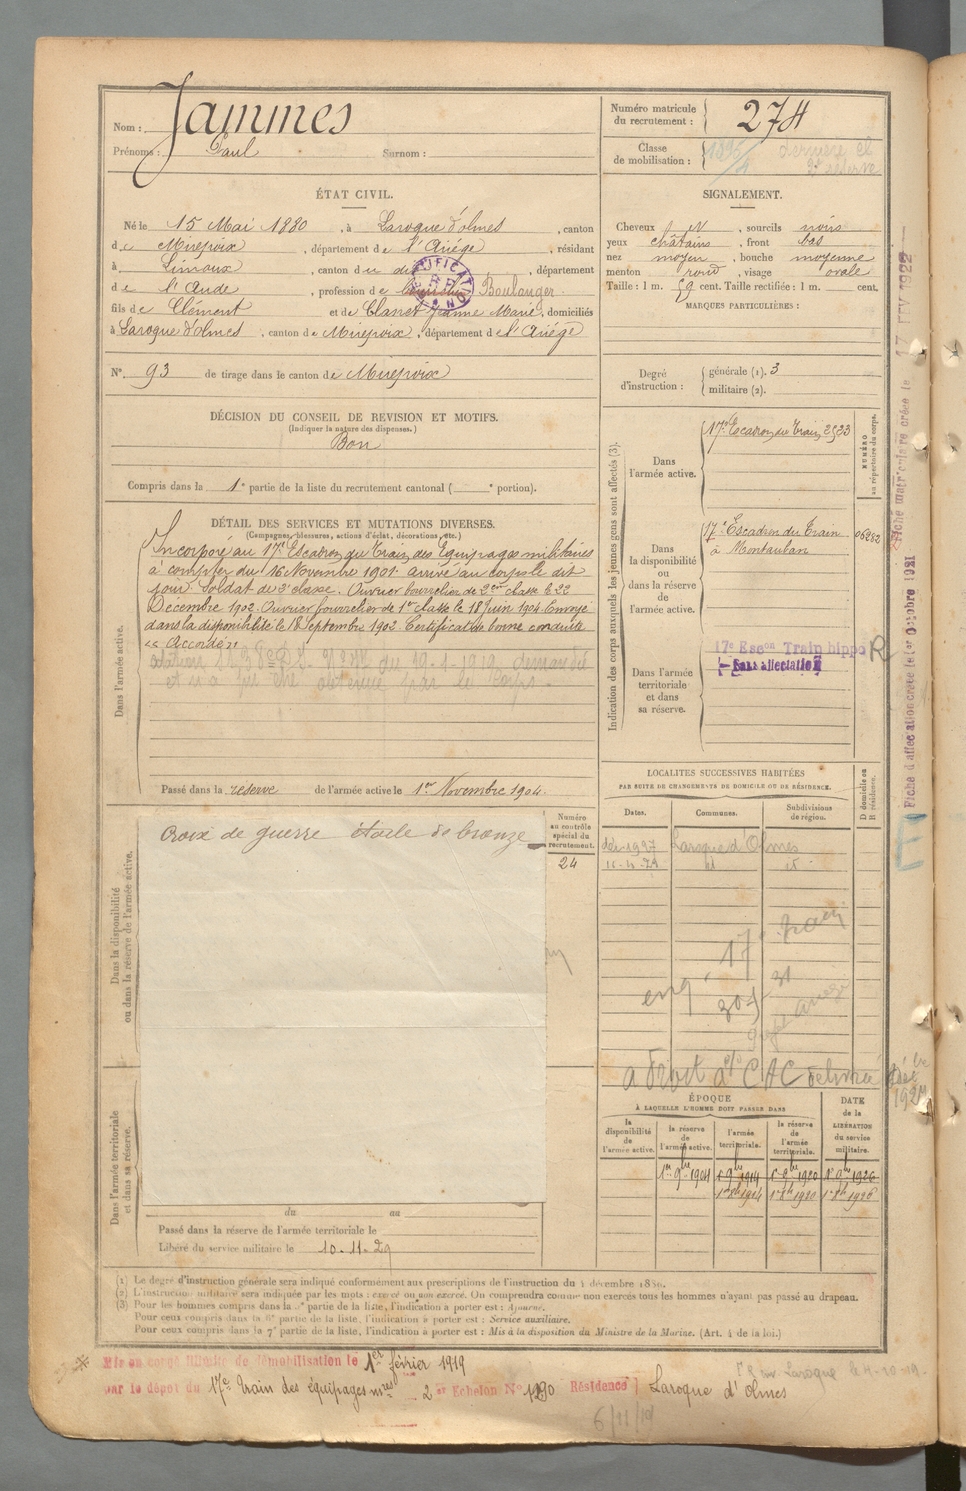 Nom : Jammes
Prénoms : Paul Surnom :
Numéro matricule du recrutement : 274
Classe de mobilisation :
ÉTAT CIVIL.
Né le 15 Mai 1880, à Laroque d'olmes, canton
de Mirepoix, département de l'Ariége, résidant
à Limoux, canton du dit, département
de l'Aude, profession de Boulanger
fils de Clément et de Clanet Jeanne Marie, domiciliés
à Laroque d'olmes, canton de Mirepoix, département de l'Ariége
N° 93 de tirage dans le canton de Mirepoix
SIGNALEMENT.
Cheveux N, sourcils noirs
yeux châtains, front bas
nez moyen, bouche moyenne
menton rond, visage ovale
Taille : 1 m. 59 cent. Taille rectifiée : 1 m. cent.
MARQUES PARTICULIÈRES :
Degré d'instruction : générale (1). 3
militaire (2).
DÉCISION DU CONSEIL DE REVISION ET MOTIFS.
(Indiquer la nature des dispenses.)
Bon
Compris dans la 1e partie de la liste du recrutement cantonal ( e portion).
DÉTAIL DES SERVICES ET MUTATIONS DIVERSES.
(Campagnes, blessures, actions d'éclat, décorations, etc.)
Dans l'armée active.
Incorporé au 17e Escadron du Train des Equipages militaires
à compter du 16 Novembre 1901. arrivé au corps le dit
jour Soldat de 2e classe. Ouvrier bourrelier de 2eme classe le 22
Décembre 1902. Ouvrier bourrelier de 1e classe le 18 Juin 1904. Envoyé
dans la disponibilité le 18 Septembre 1902. Certificat de bonne conduite
"Accordé"
du 10-1-1919 demandé
et n'a pu être obtenue par le corps.
Passé dans la réserve de l'armée active le 1er Novembre 1904.
Indication des corps auxquels les jeunes gens sont affectés (3).
NUMÉRO au répertoire du corps.
Dans l'armée active.
17e Escadron du Train 2523
Dans la disponibilité ou dans la réserve de l'armée active.
17e Escadron du Train
à Montauban
06262
Dans l'armée territoriale et dans sa réserve.
17e Escon Train hippo R
Sans affectation
Fiche matriculaire créée le 17 FEV 1922
Fiche d'affectation créée le 1er Octobre 1921
Dans la disponibilité ou dans la réserve de l'armée active.
Croix de guerre étoile de bronze
Numéro au contrôle spécial du recrutement.
24
LOCALITÉS SUCCESSIVES HABITÉES
PAR SUITE DE CHANGEMENTS DE DOMICILE OU DE RÉSIDENCE.
Dates. Communes. Subdivisions de région. D domicile ou R résidence.
Laroque d'Olmes
id id
17e train
à droit à CAC délivrée
Dans l'armée territoriale et dans sa réserve.
du au
Passé dans la réserve de l'armée territoriale le
Libéré du service militaire le 10-11-29
ÉPOQUE
À LAQUELLE L'HOMME DOIT PASSER DANS
la disponibilité de l'armée active.
la réserve de l'armée active.
l'armée territoriale.
la réserve de l'armée territoriale.
DATE de la LIBÉRATION du service militaire.
1er 9bre 1904 1e 9bre 1914 1e 8bre 1920 1e 9bre 1926
1e 8bre 1914 1e 8bre 1920 1e 8bre 1926
(1) Le degré d'instruction générale sera indiqué conformément aux prescriptions de l'instruction du 4 décembre 1889.
(2) L'instruction militaire sera indiquée par les mots : exercé ou non exercé. On comprendra comme non exercés tous les hommes n'ayant pas passé au drapeau.
(3) Pour les hommes compris dans la 5e partie de la liste, l'indication à porter est : Ajourné.
Pour ceux compris dans la 6e partie de la liste, l'indication à porter est : Service auxiliaire.
Pour ceux compris dans la 7e partie de la liste, l'indication à porter est : Mis à la disposition du Ministre de la Marine. (Art. 4 de la loi.)
Mis en congé illimité de démobilisation le 1er février 1919
par le dépôt du 17e train des équipages mres 2e Echelon N° 1290 Résidence Laroque d'Olmes
6/11/19